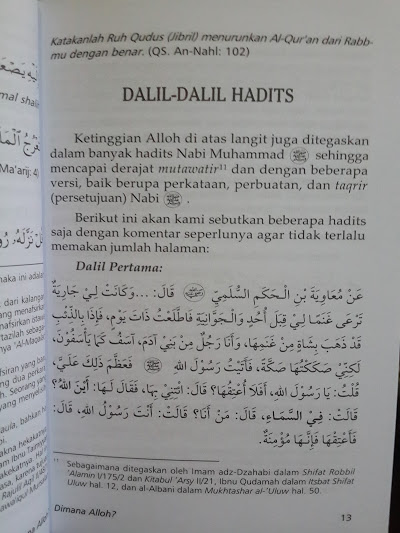 لِيْهِ يَصْعَ
mal shalih
Ma'arij: 4)
maka ini adalah
dari kalangan
nafsirkan istawa
Katakanlah Ruh Qudus (Jibril) menurunkan Al-Qur'an dari Rabb-
mu dengan benar. (QS. An-Nahl: 102)
DALIL-DALIL HADITS
Ketinggian Alloh di atas langit juga ditegaskan
dalam banyak hadits Nabi Muhammad ﷺ sehingga
mencapai derajat mutawatir¹¹ dan dengan beberapa
versi, baik berupa perkataan, perbuatan, dan taqrir
(persetujuan) Nabi ﷺ .
Berikut ini akan kami sebutkan beberapa hadits
saja dengan komentar seperlunya agar tidak terlalu
memakan jumlah halaman:
Dalil Pertama:
عَنْ مُعَاوِيَةَ بْنِ الْحَكَمِ السُّلَمِيِّ ﷺ قَالَ: ...وَكَانَتْ لِيْ جَارِيَةٌ
تَرْعَى غَنَمًا لِيْ قِبَلَ أُحُدٍ وَالْجَوَّانِيَةِ فَاطَّلَعْتُ ذَاتَ يَوْمٍ، فَإِذَا بِالذِّئْبِ
قَدْ ذَهَبَ بِشَاةٍ مِنْ غَنَمِهَا، وَأَنَا رَجُلٌ مِنْ بَنِيْ آدَمَ، آسَفُ كَمَا يَأْسَفُوْنَ،
لَكِنِّيْ صَكَكْتُهَا صَكَّةً، فَأَتَيْتُ رَسُوْلَ اللهِ ﷺ فَعَظَّمَ ذَلِكَ عَلَيَّ،
قُلْتُ: يَا رَسُوْلَ اللهِ، أَفَلَا أُعْتِقُهَا؟ قَالَ: ائْتِنِيْ بِهَا، فَقَالَ لَهَا: أَيْنَ اللهُ؟
قَالَتْ: فِيْ السَّمَاءِ، قَالَ: مَنْ أَنَا؟ قَالَتْ: أَنْتَ رَسُوْلُ اللهِ، قَالَ:
فَأَعْتِقْهَا فَإِنَّهَا مُؤْمِنَةٌ.
¹¹ Sebagaimana ditegaskan oleh Imam adz-Dzahabi dalam Shifat Robbil
'Alamin I/175/2 dan Kitabul 'Arsy II/21, Ibnu Qudamah dalam Itsbat Shifat
Uluw hal. 12, dan al-Albani dalam Mukhtashar al-'Uluw hal. 50.
Dimana Alloh?
13